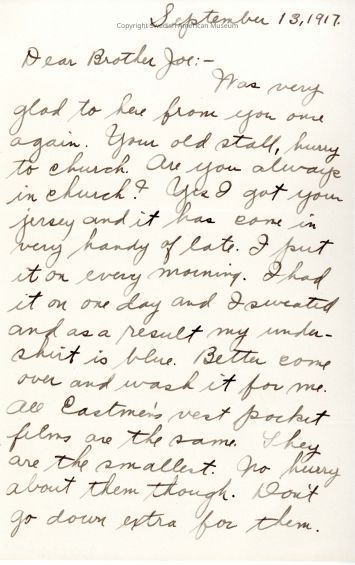 September 13, 1917.
Copyright Swedish American Museum
Dear Brother Joe:-
Was very
glad to here from you once
again. Your old stall, hurry
to church. Are you always
in church? Yes I got your
jersey and it has come in
very handy of late. I put
it on every morning. I had
it on one day and I sweated
and as a result my under-
shirt is blue. Better come
over and wash it for me.
All Eastmen's vest pocket
films are the same. They
are the smallest. No hurry
about them though. Don't
go down extra for them.